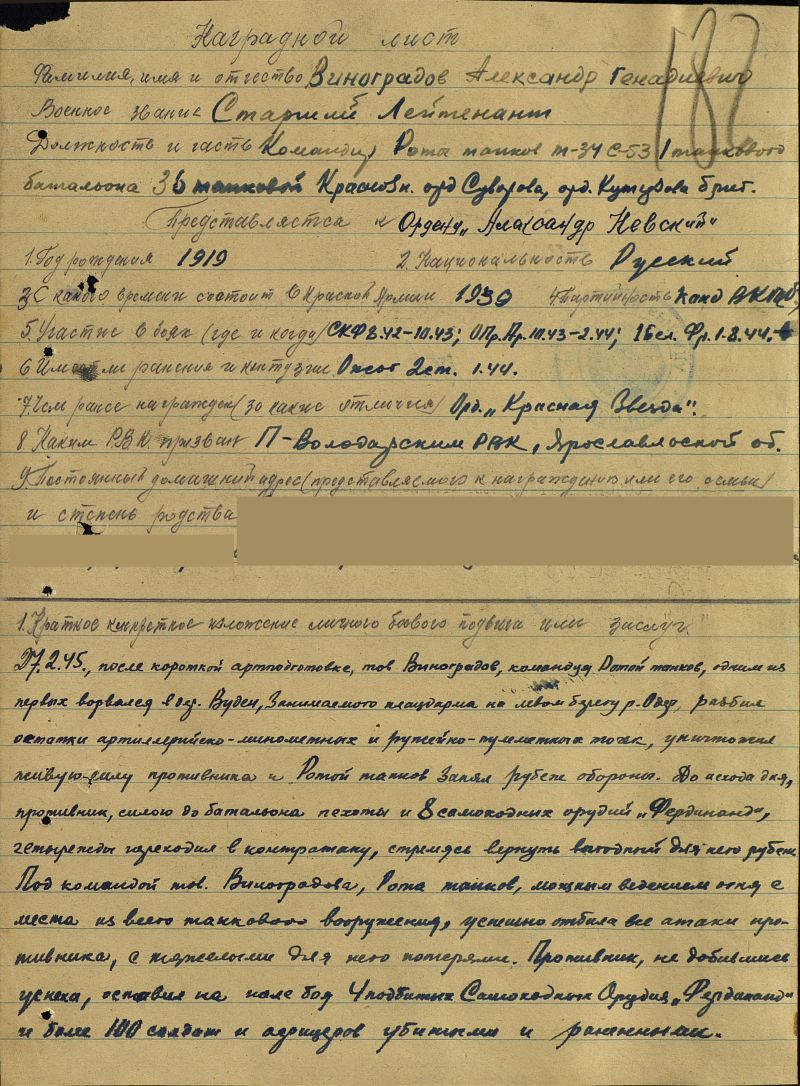 187
Наградной лист
Фамилия, имя и отчество Виноградов Александр Генадиевич
Военное звание Старший Лейтенант
Должность и часть Командир Рота танков т-34 С-53 1 танкового
батальона 36 танковой Краснозн. орд Суворова, орд. Кутузова бриг.
Представляется к Ордену „Александр Невский"
1. Год рождения 1919 2. Национальность Русский
3 С какого времени состоит в Красной Армии 1939 4. Партийность Канд ВКП(б)
5. Участие в боях (где и когда) СКФ 8.42-10.43; 10.43-2.44; 1 Бел. Фр. 1-8.44.
6 Имеет ли ранения и контузии Ожог 2 ст. 1.44.
7 Чем ранее награжден (за какие отличия) Орд. „Красная Звезда".
8. Каким РВК призван П-Володарским РВК, Ярославской об.
9. Постоянный домашний адрес (представляемого к награждению или его семьи)
и степень родства
1. Краткое конкретное изложение личного боевого подвига или заслуг
7.2.45., после короткой артподготовке, тов Виноградов, командуя Ротой танков, одним из
первых ворвался в Вуден, Занимаемого плацдарма на левом берегу р. Одер, разбил
остатки артиллерийско-минометных и ружейно-пулеметных точек, уничтожил
живую силу противника и Ротой танков занял рубеж обороны. До исхода дня,
противник, силою до батальона пехоты и 8 самоходных орудий „Фердинанд",
четырежды переходил в контратаку, стремясь вернуть выгодный для него рубеж
Под командой тов. Виноградова, Рота танков, мощным ведением огня с
места из всего танкового вооружения, успешно отбила все атаки про-
тивника, с тяжелыми для него потерями. Противник, не добившись
успеха, оставил на поле боя 4 подбитых Самоходных Орудия „Фердинанд"
и более 100 солдат и офицеров убитыми и раненными.